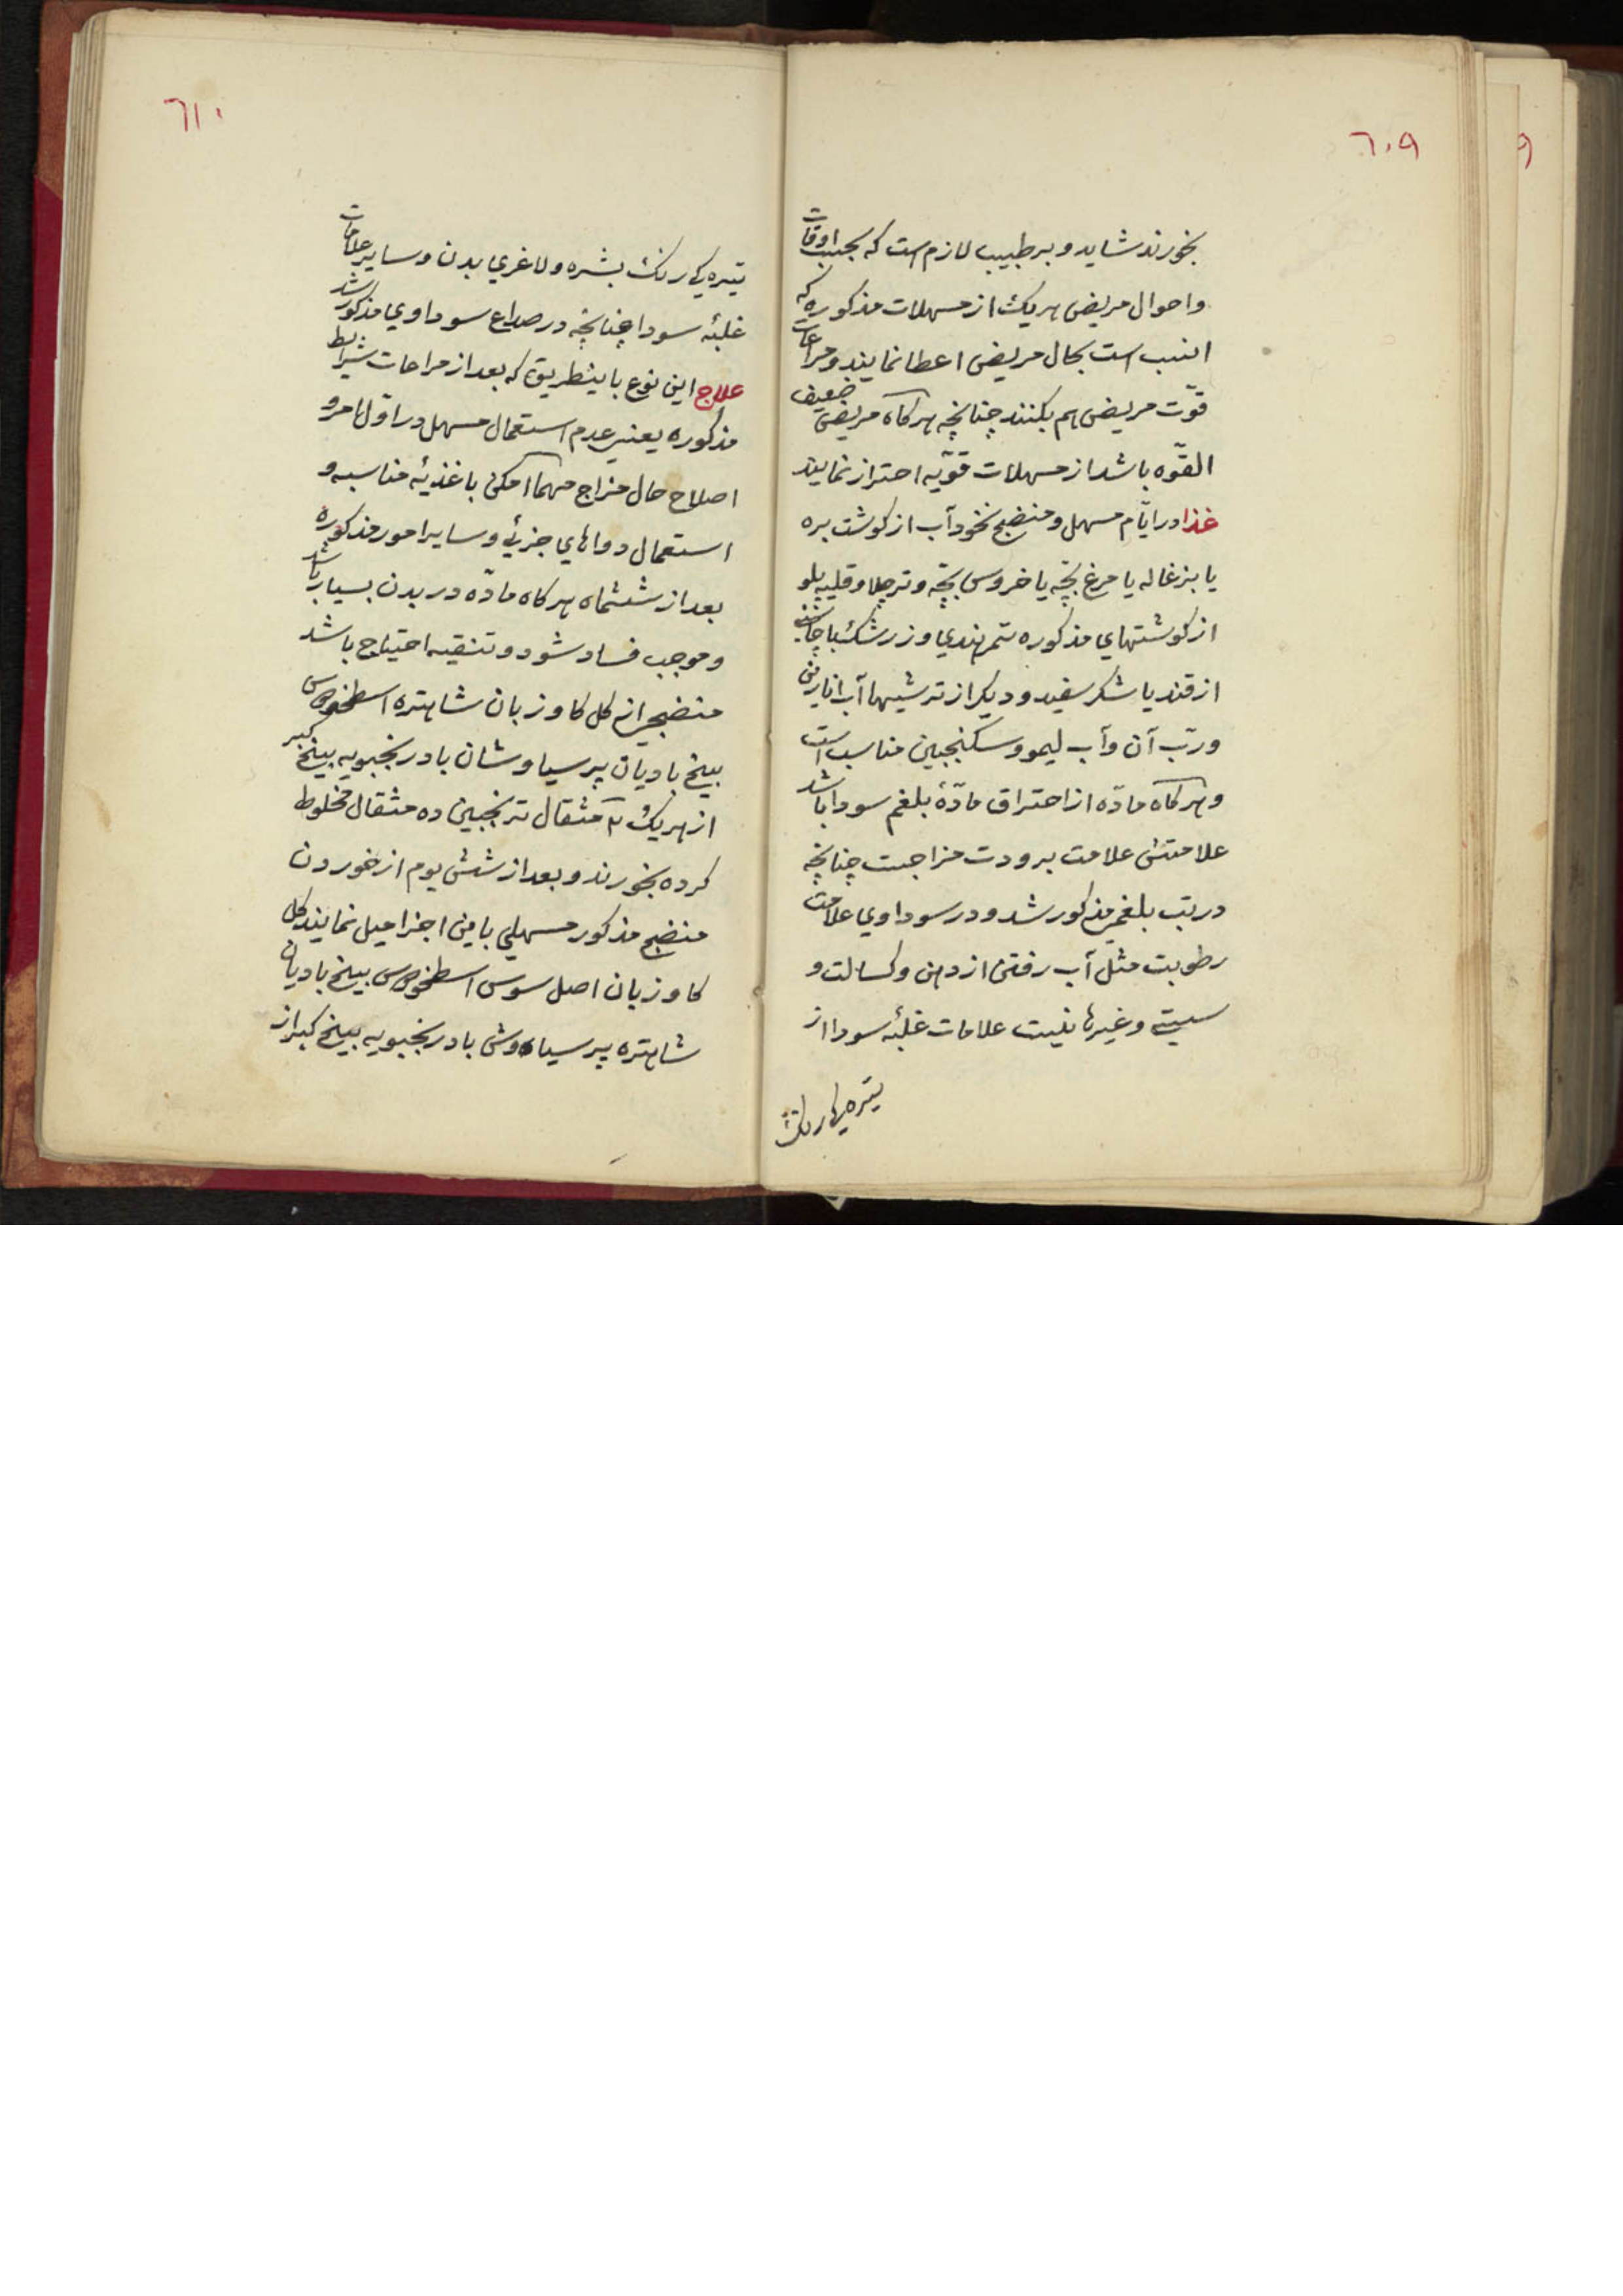 ٦٠٩
بخورند شاید و بر طبیب لازم است که بحسب اوقات
و احوال مریض هریک از مسهلات مذکوره که
انسب است بحال مریض اعطا نمایند و مراعات
قوّت مریض هم بکنند چنانچه هرکاه مریض ضعیف
القوّه باشد از مسهلات قویّه احتراز نمایند
غذا در ایّام مسهل و منضج نخودآب از کوشت بره
یا بزغاله یا مرغ بچّه یا خروس بچّه و تر چلا و قلیه پلو
از کوشتهای مذکوره تمر هندی و زرشک با چاشنی
از قند یا شکر سفید و دیکر از ترشیها آب انارین
و ربّ آن و آب لیمو و سکنجبین مناسب است
و هرکاه مادّه از احتراق مادّهٔ بلغم سودا باشد
علامتش علامت برودت مزاجست چنانچه
در تب بلغمی مذکور شد و در سوداوی علامت
رطوبت مثل آب رفتن از دهن و کسالت و
سستی و غیرها نیست علامات غلبهٔ سودا از
تیره‌یکی رنک
٦١٠
تیره‌یکی رنک بشره و لاغری بدن و سایر علامات
غلبهٔ سودا چنانچه در صداع سوداوی مذکور شد
علاج این نوع باینطریق که بعد از مراعات شرایط
مذکوره یعنی عدم استعمال مسهل در اوّل امر و
اصلاح حال مزاج مهما امکن باغذیهٔ مناسبه و
استعمال دواهای جزئی و سایر امور مذکوره
بعد از ششماه هرکاه مادّه در بدن بسیار باشد
و موجب فساد شود و تنقیه احتیاج باشد
منضجی از کل کاوزبان شاهتره اسطخودوس
بیخ بادیان پرسیاوشان بادرنجبویه بیخ کبر
از هریک ٢ مثقال ترنجبین ده مثقال مخلوط
کرده بخورند و بعد از شش یوم از خوردن
منضج مذکور مسهلی باین اجزا میل نمایند کل
کاوزبان اصل سوس اسطخودوس بیخ بادیان
شاهتره پرسیاوش بادرنجبویه بیخ کبر از